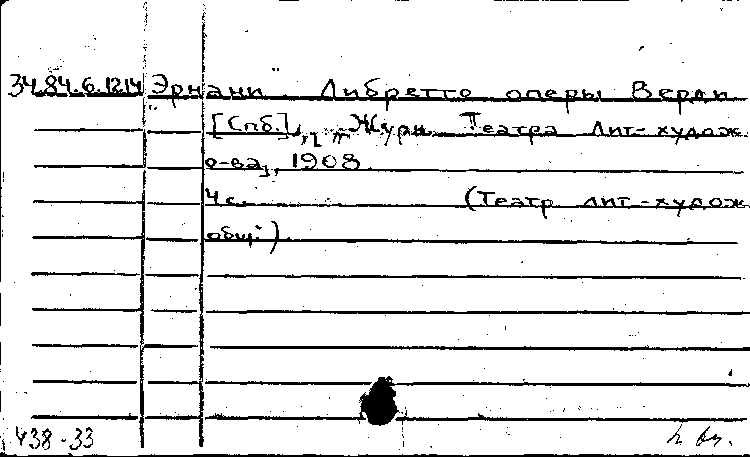 34.84.6.1214 „Эрнани". Либретто оперы Верди
[Спб.], [„Журн. Театра Лит-худож.
о-ва], 1908.
4 с. (Театр лит-худож.
общ.)
438-33